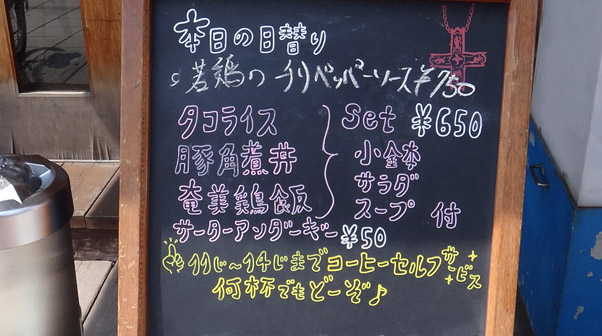 本日の日替り
若鶏の チリペッパーソース ¥750
タコライス
豚角煮丼
奄美鶏飯
Set ¥650
小鉢
サラダ
スープ 付
サーターアンダーギー ¥50
11じ〜14じまでコーヒーセルフサービス
何杯でもどーぞ♪